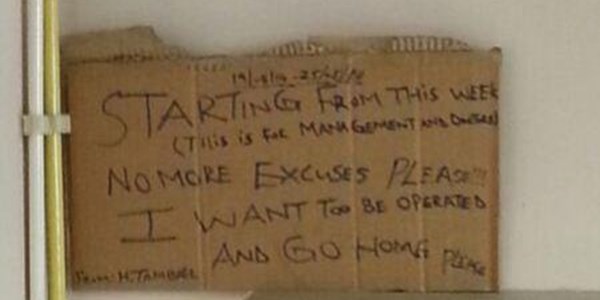 STARTING FROM THIS WEEK
(THIS IS FOR MANAGEMENT AND DOCTORS)
NO MORE EXCUSES PLEASE!!!
I WANT TOO BE OPERATED
AND GO HOME PLEASE
From: H.